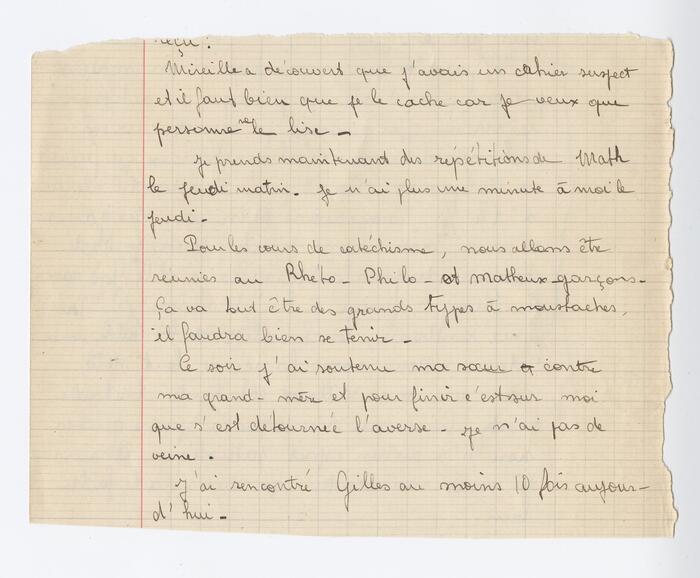 reçu !
Mireille a découvert que j'avais un cahier suspect
et il faut bien que je le cache car je veux que
personne ne le lise -
Je prends maintenant des répétitions de Math
le jeudi matin. Je n'ai plus une minute à moi le
jeudi -
Pour les cours de catéchisme, nous allons être
réunies au Rhéto - Philo - et matheux - garçons -
Ça va tout être des grands types à moustaches,
il faudra bien se tenir -
Ce soir j'ai soutenu ma sœur et contre
ma grand-mère et pour finir c'est sur moi
que s'est détournée l'averse - Je n'ai pas de
veine .
J'ai rencontré Gilles au moins 10 fois aujour-
d'hui -